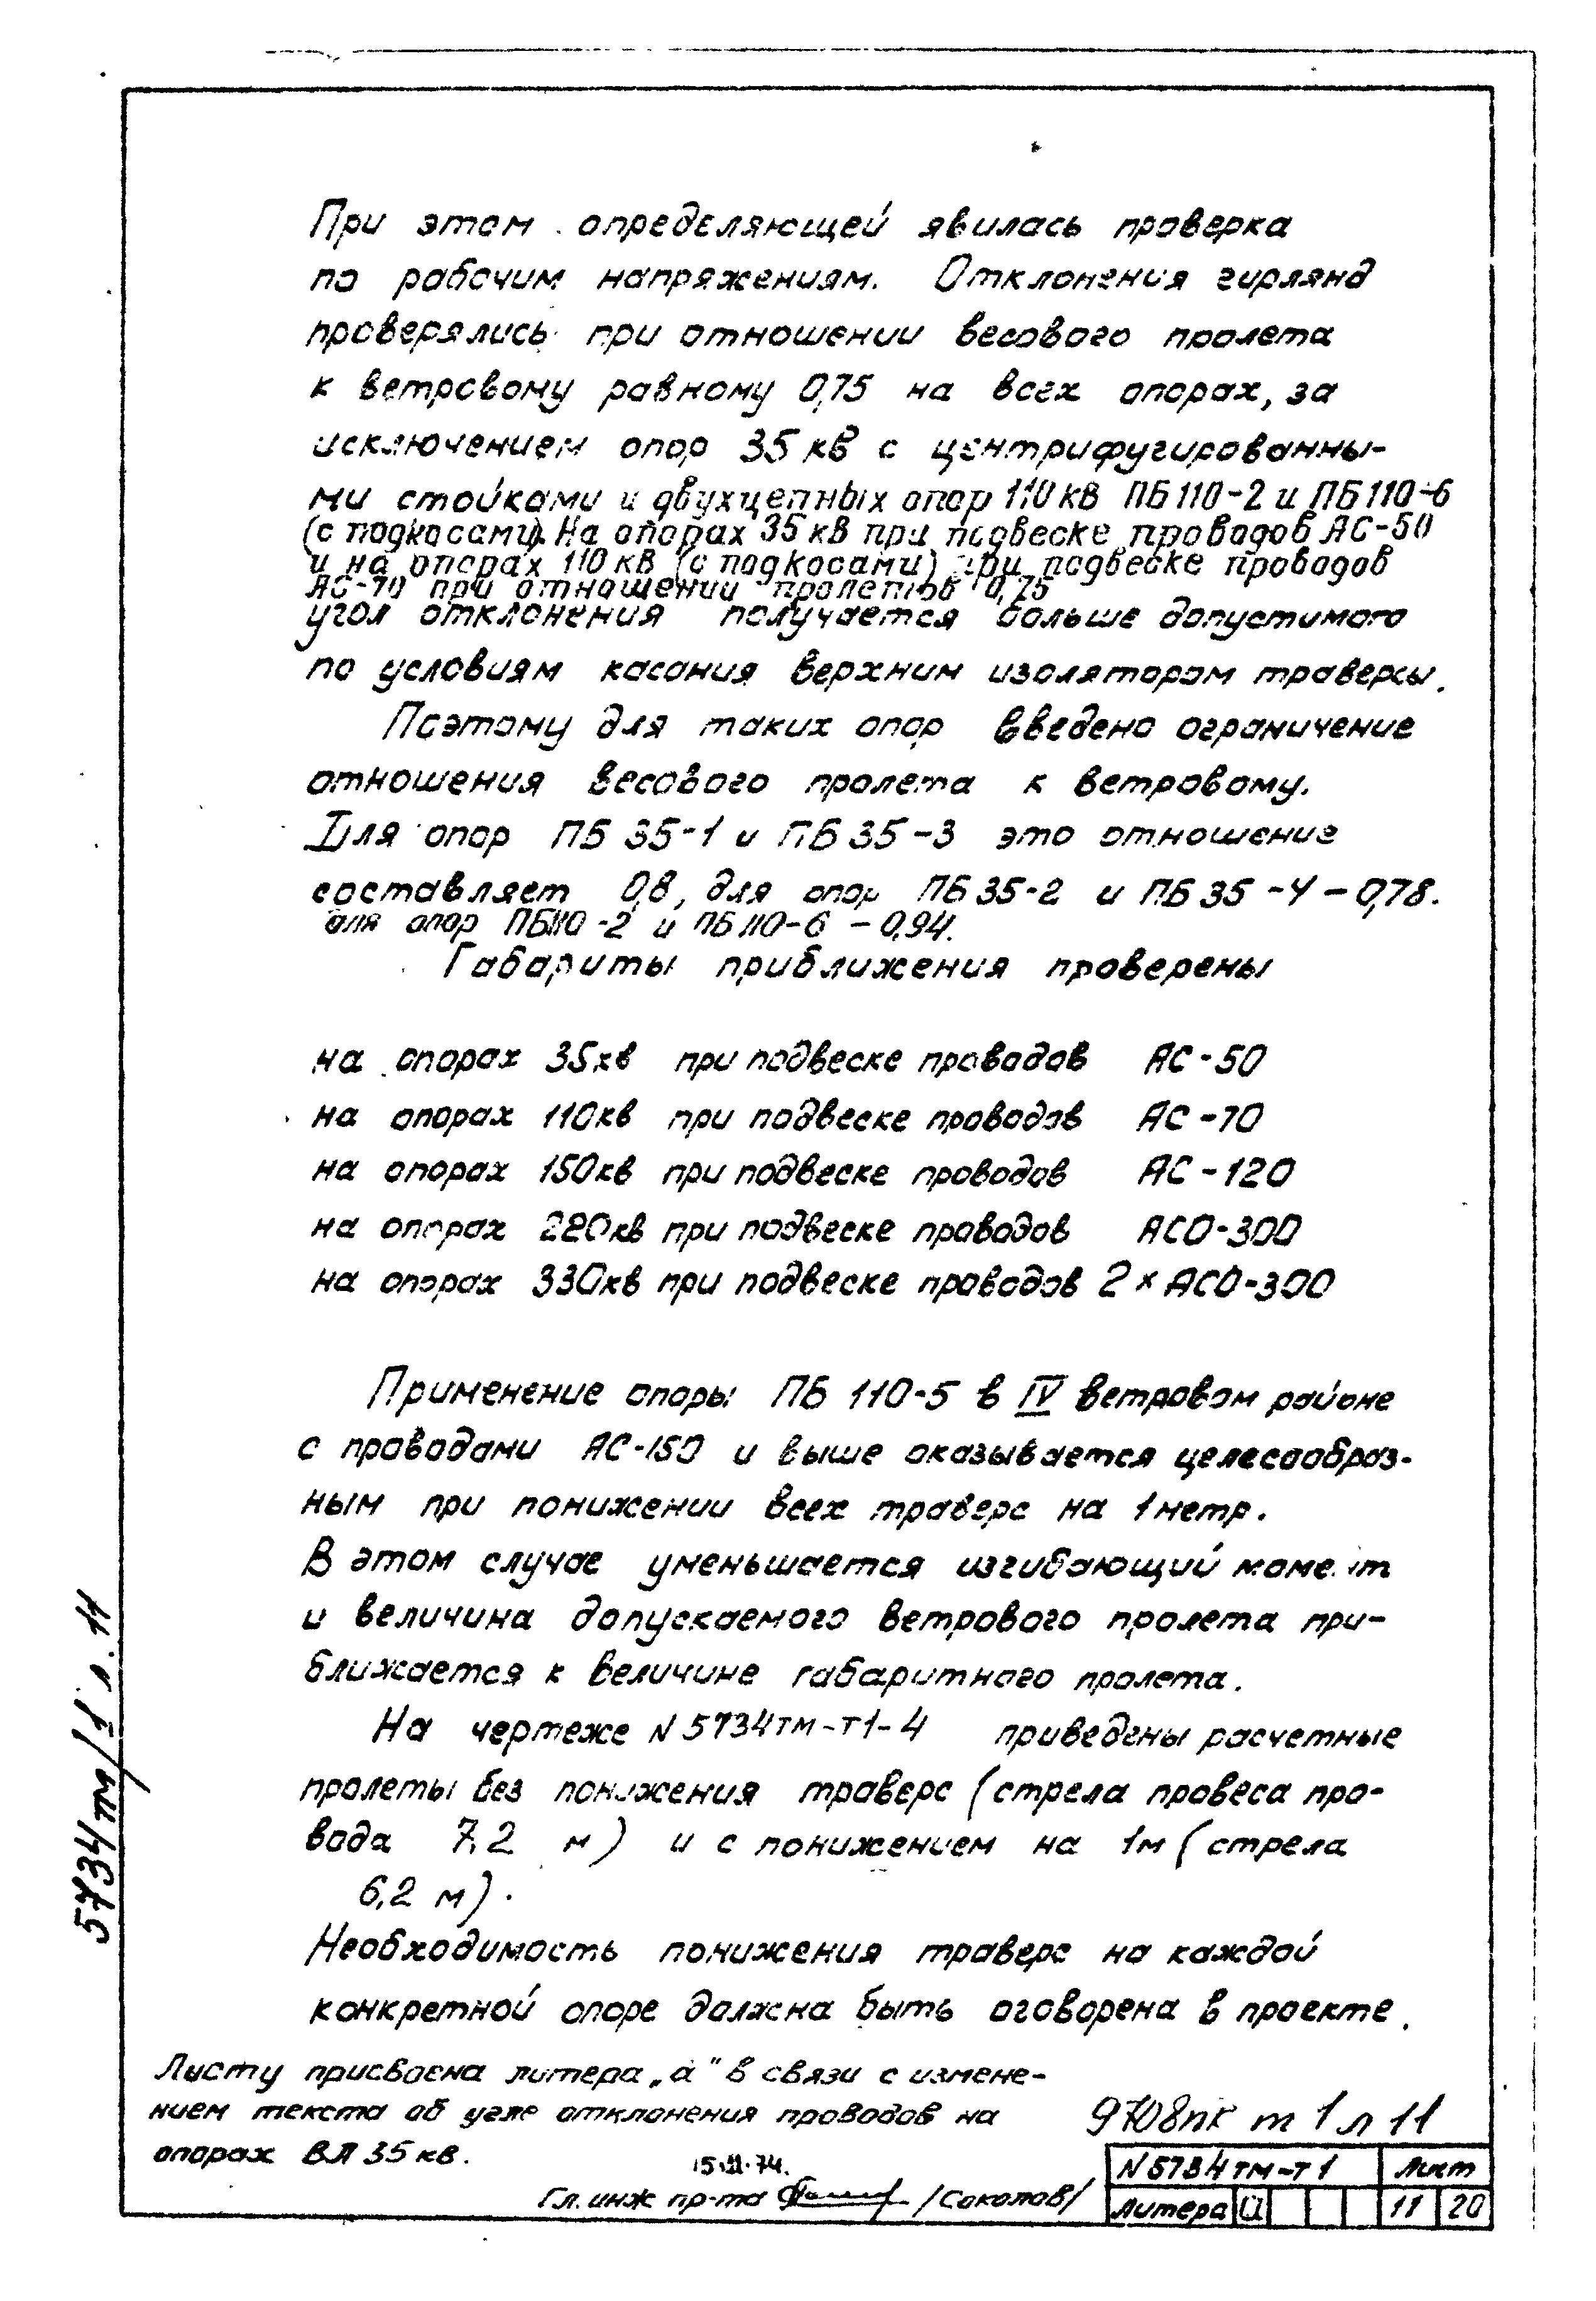 При этом определяющей явилась проверка
по рабочим напряжениям. Отклонения гирлянд
проверялись при отношении весового пролета
к ветровому равному 0,75 на всех опорах, за
исключением опор 35 кв с центрифугированны-
ми стойками и двухцепных опор 110 кв ПБ 110-2 и ПБ 110-6
(с подкосами). На опорах 35 кв при подвеске проводов АС-50
и на опорах 110 кв (с подкосами) при подвеске проводов
АС-70 при отношении пролетов 0,75
угол отклонения получается больше допустимого
по условиям касания верхним изолятором траверсы.
Поэтому для таких опор введено ограничение
отношения весового пролета к ветровому.
Для опор ПБ 35-1 и ПБ 35-3 это отношение
составляет 0,8, для опор ПБ 35-2 и ПБ 35-4 – 0,78.
для опор ПБ110-2 и ПБ110-6 – 0,94.
Габариты приближения проверены
на опорах 35кв при подвеске проводов АС-50
на опорах 110кв при подвеске проводов АС-70
на опорах 150кв при подвеске проводов АС-120
на опорах 220кв при подвеске проводов АСО-300
на опорах 330кв при подвеске проводов 2×АСО-300
Применение опоры ПБ 110-5 в IV ветровом районе
с проводами АС-150 и выше оказывается целесообраз-
ным при понижении всех траверс на 1 метр.
В этом случае уменьшается изгибающий момент
и величина допускаемого ветрового пролета при-
ближается к величине габаритного пролета.
На чертеже N 5734тм-т1-4 приведены расчетные
пролеты без понижения траверс (стрела провеса про-
вода 7,2 м) и с понижением на 1м (стрела
6,2 м).
Необходимость понижения траверс на каждой
конкретной опоре должна быть оговорена в проекте.
Листу присвоена литера „а" в связи с измене-
нием текста об угле отклонения проводов на
опорах ВЛ 35 кв.
15.II.74.
Гл. инж пр-та /Соколов/
9708пк т 1 л 11
N 5734тм-т1 Лист
Литера а 11 20
5734тм/1 л. 11